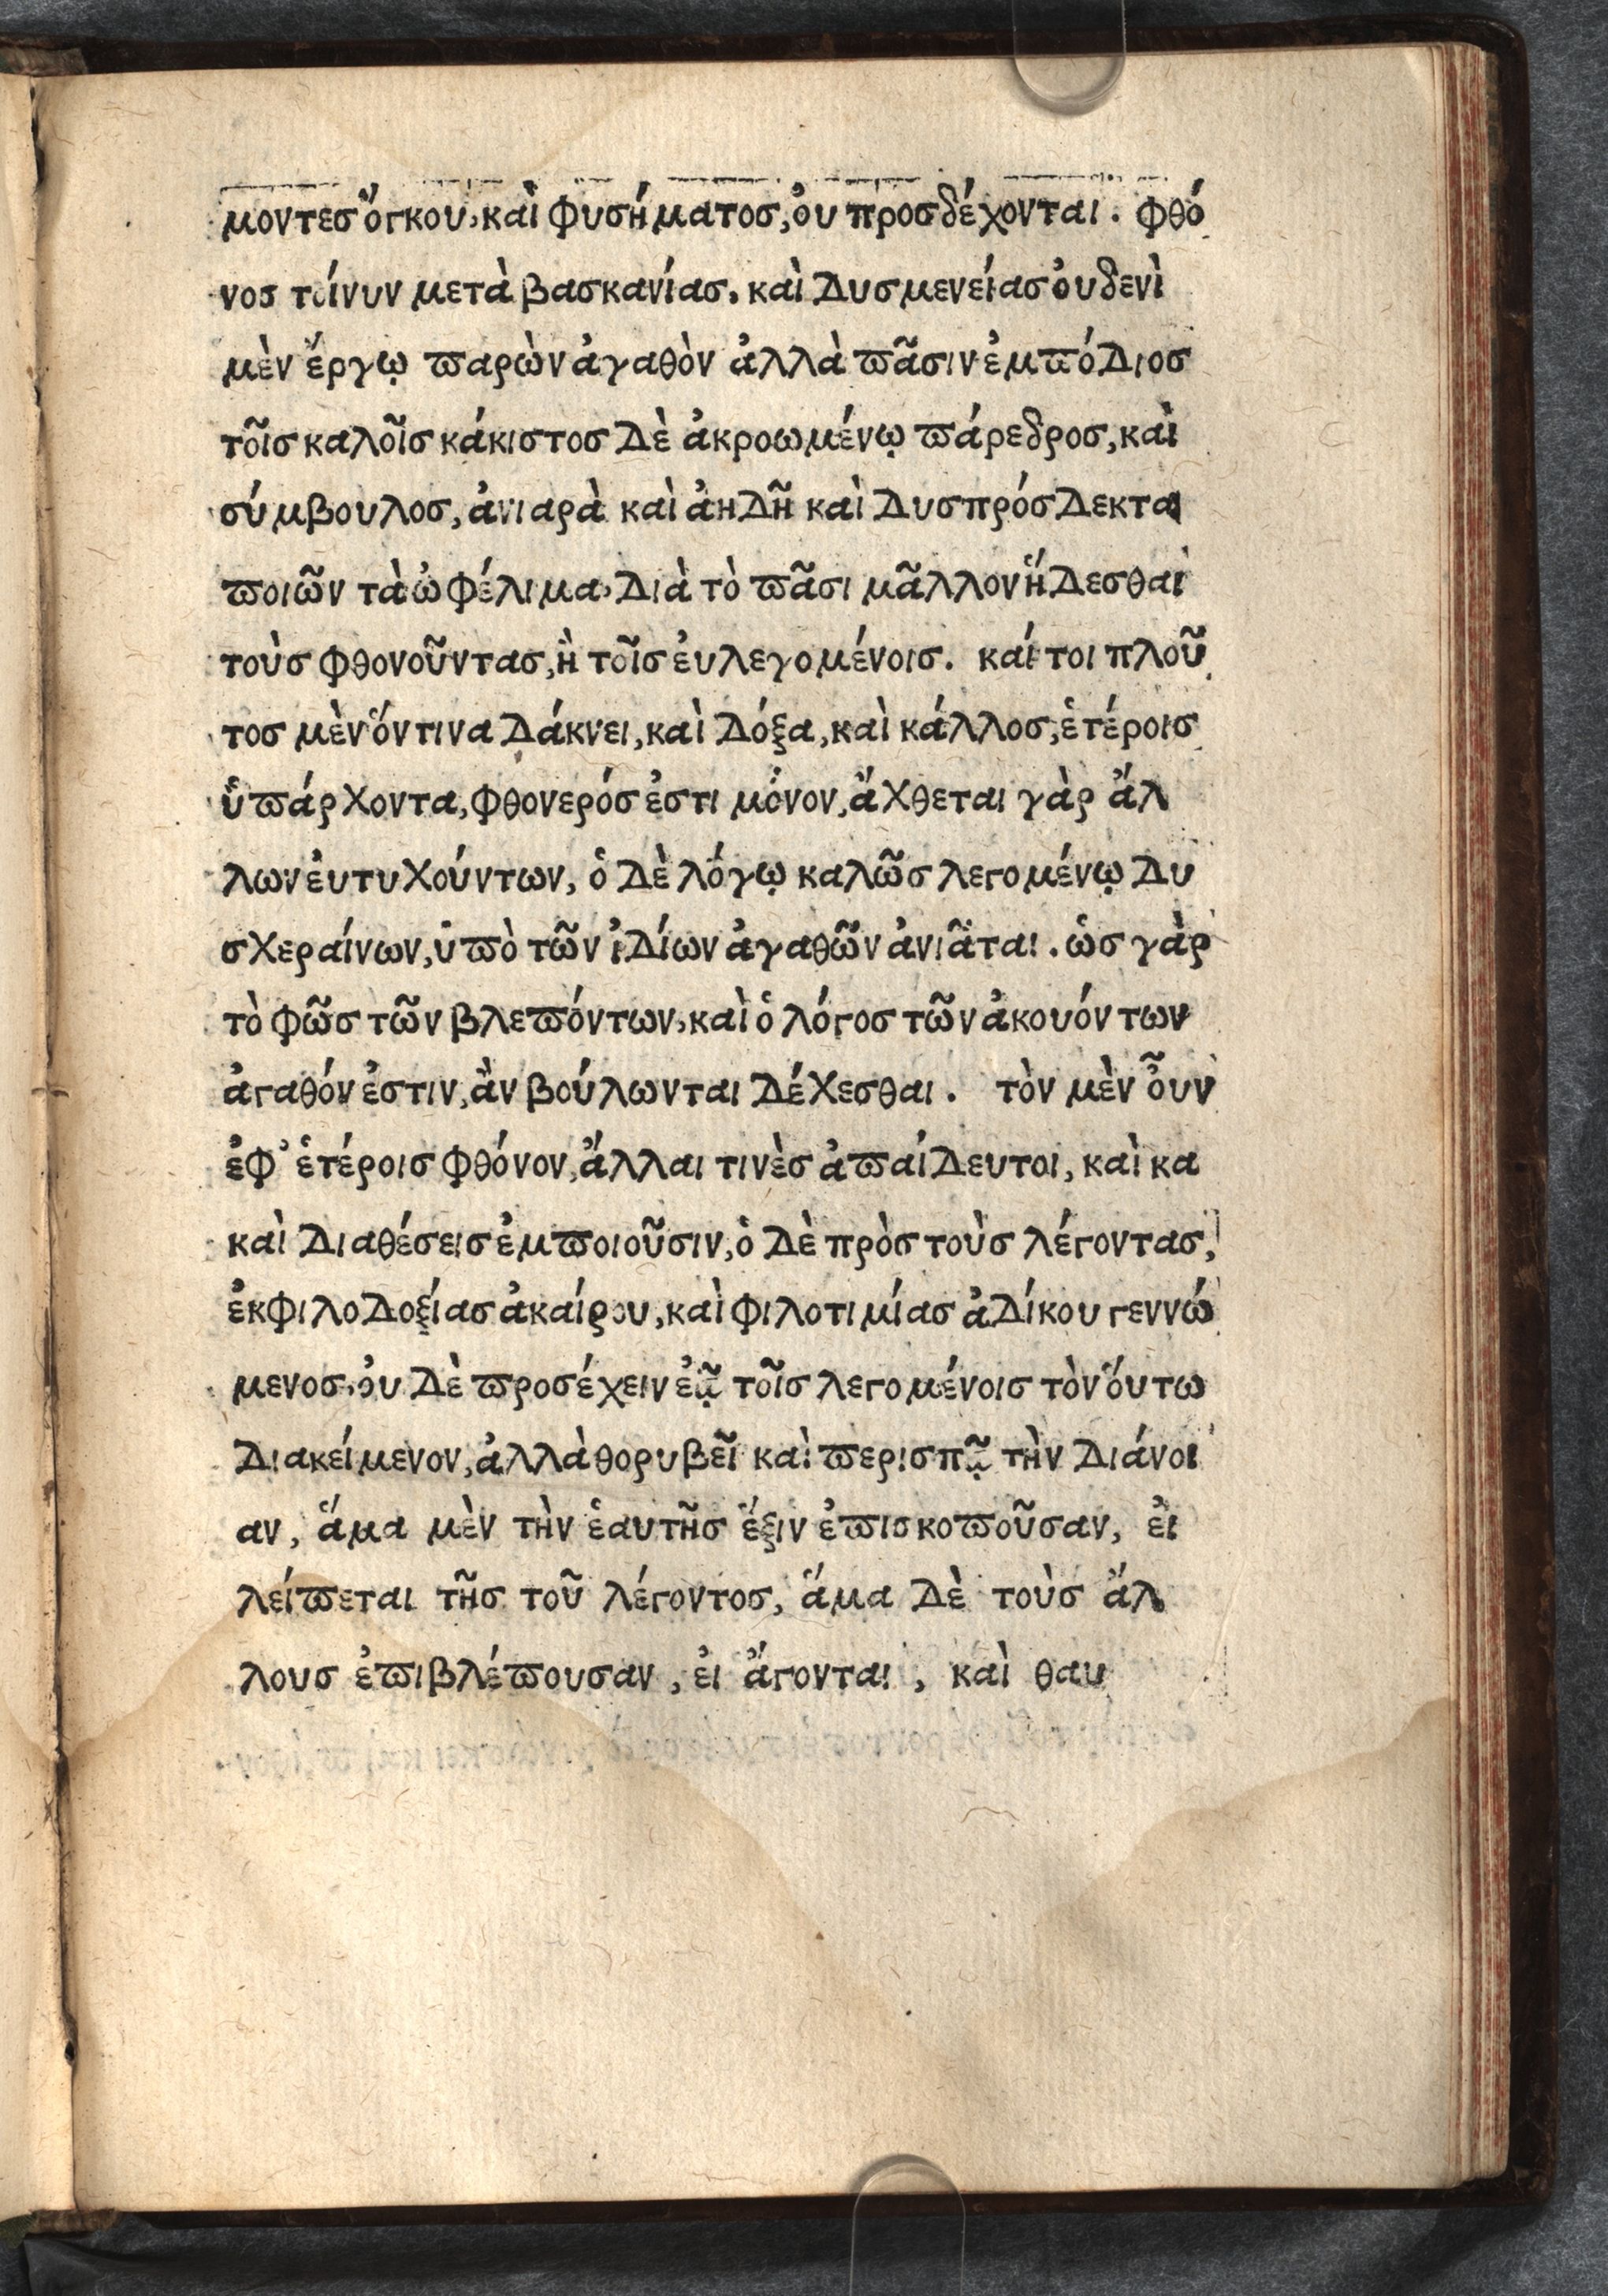 μοντεσ ὄγκου, καὶ φυσήματοσ, ὀυ προσδέχονται. φθό
νοσ τοίνυν μετὰ βασκανίασ. καὶ δυσμενείασ ὀυδενὶ
μὲν ἔργῳ παρὼν ἀγαθὸν ἀλλὰ πᾶσιν ἐμπόδιοσ
τοῖσ καλοῖσ κάκιστοσ δὲ ἀκροωμένῳ πάρεδροσ, καὶ
σύμβουλοσ, ἀνιαρὰ καὶ ἀηδῆ καὶ δυσπρόσδεκτα
ποιῶν τὰ ὠφέλιμα, διὰ τὸ πᾶσι μᾶλλον ἥδεσθαι
τοὺσ φθονοῦντασ, ἢ τοῖσ ἐυλεγομένοισ. καί τοι πλοῦ
τοσ μὲν ὅντινα δάκνει, καὶ δόξα, καὶ κάλλοσ, ἑτέροισ
ὑπάρχοντα, φθονερόσ ἐστι μόνον, ἄχθεται γὰρ ἄλ
λων ἐυτυχούντων, ὁ δὲ λόγῳ καλῶσ λεγομένῳ δυ
σχεραίνων, ὑπὸ τῶν ἰδίων ἀγαθῶν ἀνιᾶται. ὡσ γὰρ
τὸ φῶσ τῶν βλεπόντων, καὶ ὁ λόγοσ τῶν ἀκουόντων
ἀγαθόν ἐστιν, ἂν βούλωνται δέχεσθαι. τὸν μὲν ὖουν
ἐφ' ἑτέροισ φθόνον, ἄλλαι τινὲσ ἀπαίδευτοι, καὶ κα
καὶ διαθέσεισ ἐμποιοῦσιν, ὁ δὲ πρὸσ τοὺσ λέγοντασ,
ἐκφιλοδοξίασ ἀκαίρου, καὶ φιλοτιμίασ ἀδίκου γεννώ
μενοσ, ὀυ δὲ προσέχειν ἐᾷ τοῖσ λεγομένοισ τὸν ὅυτω
διακείμενον, ἀλλὰ θορυβεῖ καὶ περισπᾷ τὴν διάνοι
αν, ἅμα μὲν τὴν ἑαυτῆσ ἕξιν ἐπισκοποῦσαν, ἐι
λείπεται τῆσ τοῦ λέγοντοσ, ἅμα δὲ τοὺσ ἄλ
λουσ ἐπιβλέπουσαν, ἐι ἄγονται, καὶ θαυ